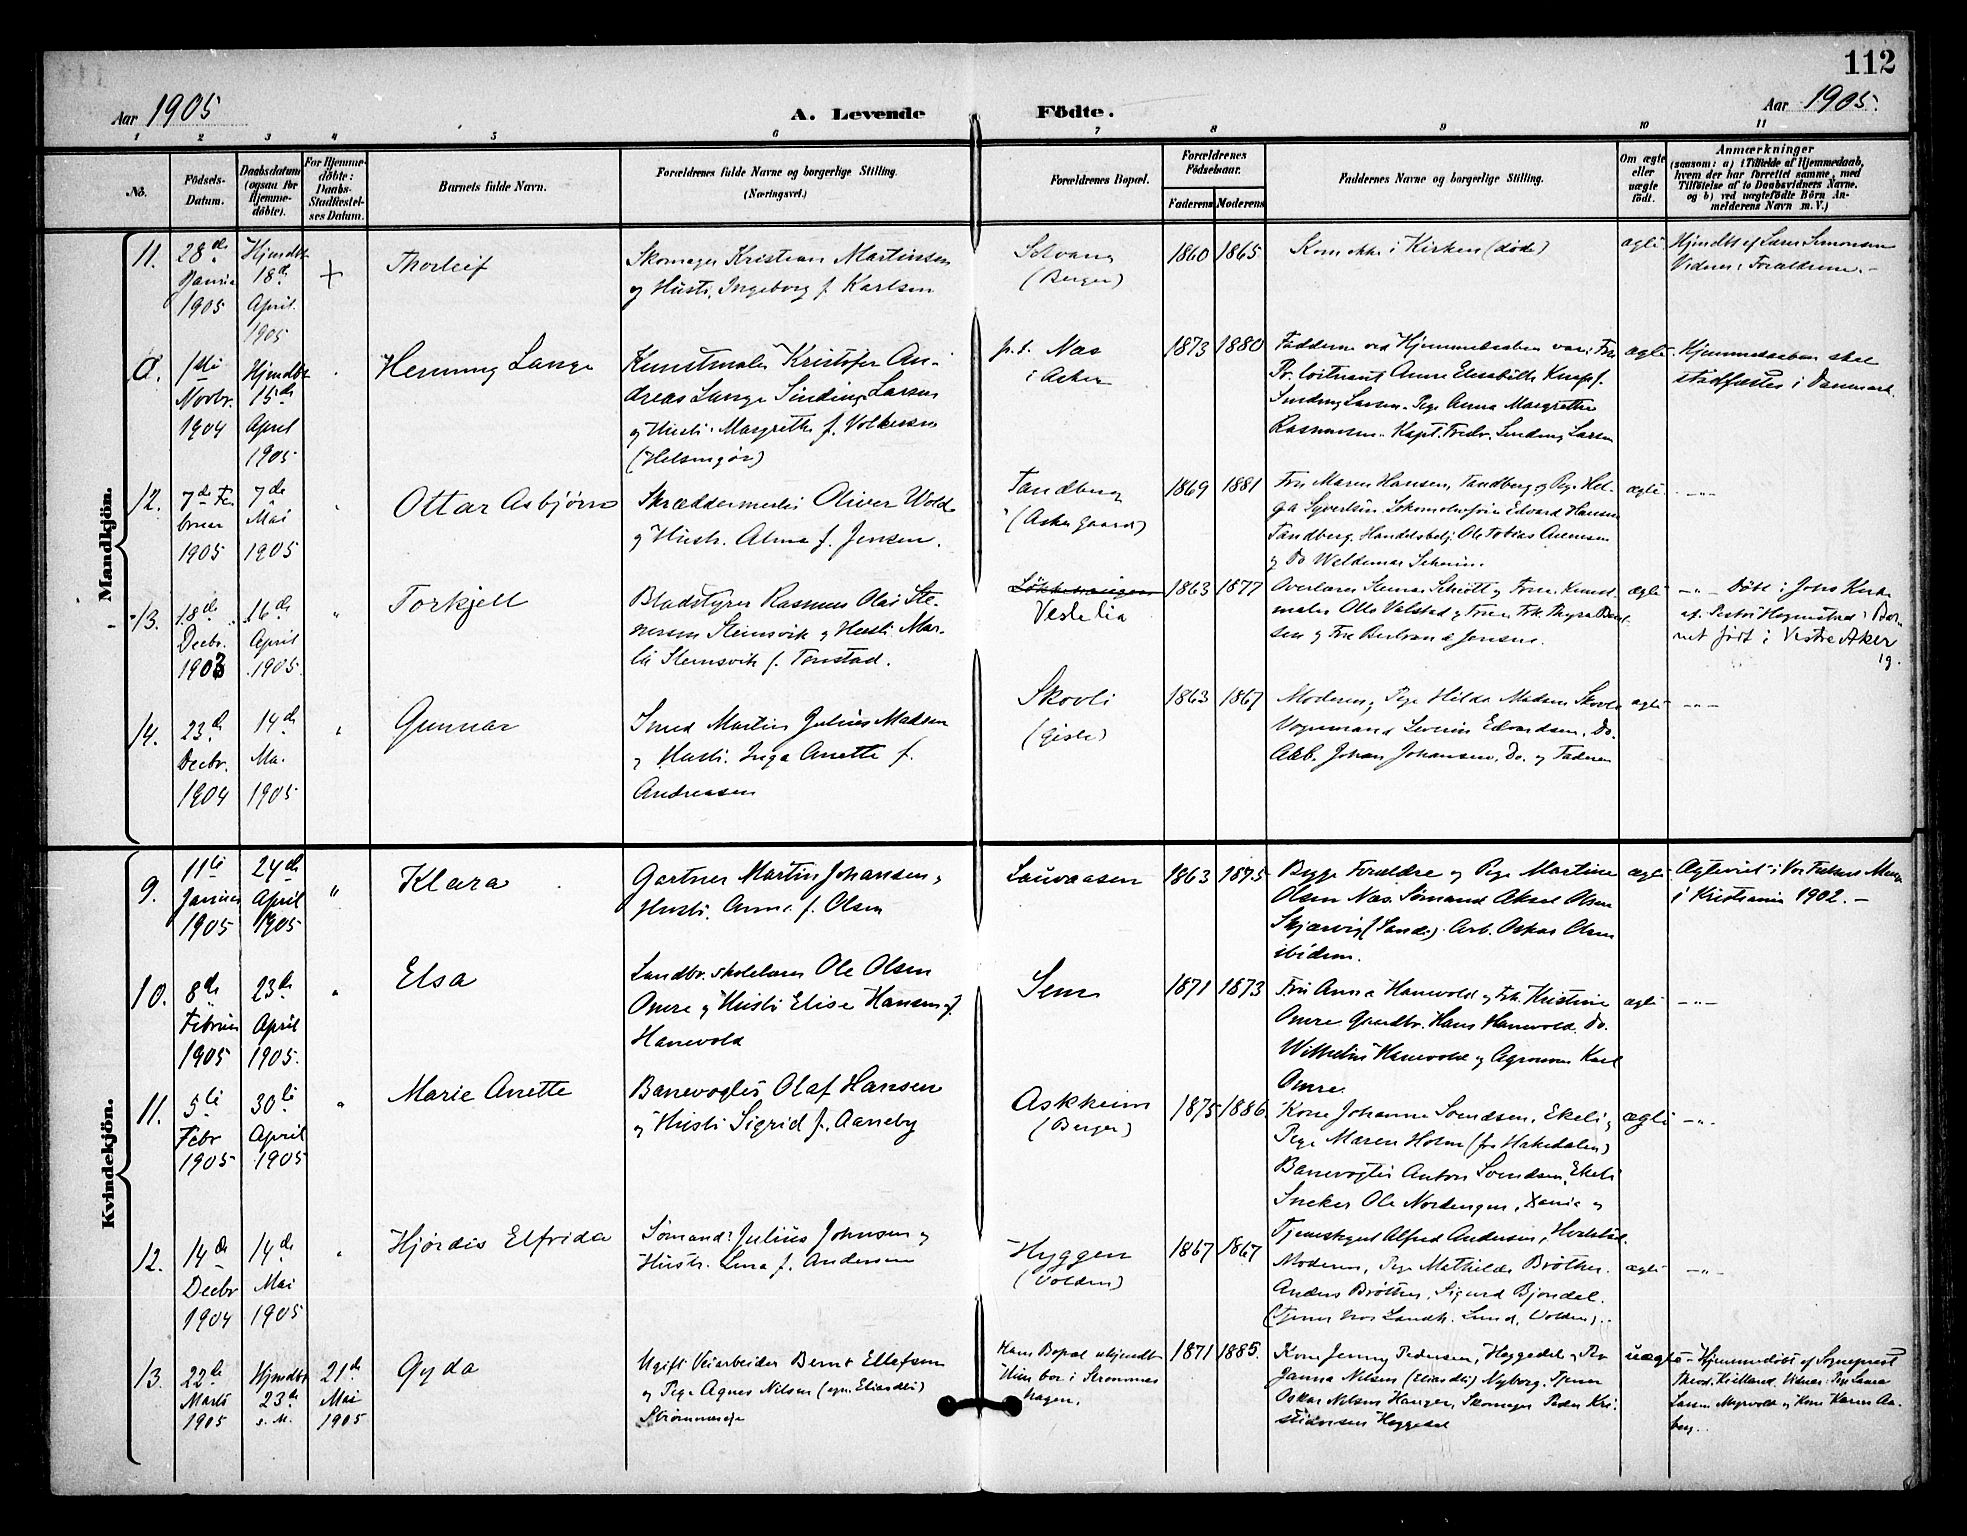 112
Aar 1905
A. Levende Födte.
Aar 1905.
1 2 3 4 5 6 7 8 9 10 11
No.
Födsels-
Datum.
Daabsdatum
(ogsaa for
Hjemme-
döbte).
For Hjemme-
döbte:
Daabs-
Stadfæstel-
ses Datum.
Barnets fulde Navn.
Forældrenes fulde Navne og borgerlige Stilling.
(Næringsvei.)
Forældrenes Bopæl.
Forældrenes
Födselsaar.
Faderens Moderens
Faddernes Navne og borgerlige Stilling.
Om ægte
eller
uægte
födt.
Anmærkninger
(saasom: a) i Tilfælde af Hjemmedaab,
hvem der har forrettet samme, med
Tilföielse af to Daabsvidners Navne.
og b) ved uægtefödte Börn An-
melderens Navn m. V.)
Mandkjön.
11.
28de
1905
18de
April
1905
+
Thorleif
Skomager Kristian Martinsen
og Hustr. Ingeborg f. Karlsen
Solvang
(Berger)
1860 1865
Kom ikke i Kirken (döde)
ægte
Hjmdbt af Lars Simonsen
Vidner: Forældrene. -
Novbr.
1904
15de
April
1905
Henning Lange
Kunstmaler Kristofer An-
dreas Lange Sinding Larsen
og Hustr. Margrethe f. Volkersen
(Helsingør)
p.t. Næs
i Asker
1873 1880
Fadderne ved Hjemmedaaben var: Fru
Pr. loitnant Anne Elisabeth Knap f.
Sinding Larsen. Pige Anna Margrethe
Rasmussen. Kapt. Fredr. Sinding Larsen
ægte
Hjemmedaaben skal
stadfæstes i Danmark.
12.
7de Fe
bruar
1905
7de
Mai
1905
Ottar Asbjørn
Skræddermester Oliver Wold
og Hustr. Alma f. Jensen.
Tandberg
(Asker gaard)
1869 1881
Fru Maren Hansen, Tandberg og Pige Hel-
ga Syvertsen. Edvard Hansen
Tandberg. Handelsbetj. Ole Tobias
og Do Waldemar
ægte
-"-
13.
18de
Decbr.
1903
16de
April
1905
"
Torkjell
Bladstyrer Rasmus Olai Ste-
nersen Steinsvik og Hustr. Mar-
Steinsvik f. Tonstad.
Vestelia
1863 1877
Overlærer Steinar Schött og Frue. Kunst-
maler Otto Valstad og Frue. Frk. Thyra Bent-
sen og Frk. Jensen.
ægte
-"- Döbt i Johs Kirke
af Pastor Hognestad. Bar-
net födt i Vestre Aker
14.
23de
Decbr.
1904
14de
Mai
1905
"
Gunnar
Smed Martin Julius Madsen
og Hustr. Inga Anette f.
Andreasen
Skovli
1863 1867
Moderen, Pige Hilda Madsen Skovli
Vognmand Severin Edvardsen, Do.
Arb. Johan Johansen. Do. og Faderen
ægte
-"-
Kvindekjön.
9.
11te
Januar
1905
24de
April
1905
"
Klara
Gartner Martin Johansen og
Hustr. Anna f. Olsen
Lauvaasen
1863 1875
Begge Forældre og Pige Martine
Olsen Næs. Sømand Aksel Olsen
Skjærvig (Sande). Arb. Oskar Olsen
ibidem.
ægte
Ægteviet i Vor Frelsers Menigh
i Kristiania 1902. -
10.
8de
Februar
1905
23de
April
1905.
"
Elsa
Landbr. skolelærer Ole Olsen
Omre og Hustr Elise Hansen f.
Hanevold
Sem
1871 1873
Fru Anna Hanevold og Frk. Kristine
Omre Grundbr. Hans Hanevold. Do.
Wilhelm Hanevold og Agronom Karl
Omre.
ægte
-"-
11.
5te
Febr
1905
30te
April
1905
"
Marie Anette
Banevogter Olaf Hansen
og Hustr Sigrid f. Aaneby
Askheim
(Berger)
1875 1886
Kone Johanne Svendsen, Ekeli og
Pige Maren Holm (fra Hakedalen)
Banevogter Anton Svendsen, Ekeli
Snekker Ole Nordengen, Xania og
Tjenestegut Alfred Andersen, Hvalstad.
ægte
-"-
12.
14de
Decbr
1904
14de
Mai
1905
"
Hjørdis Elfrida
Sømand Julius Johnsen og
Hustr. Lina f. Andersen
Hyggen
(Volden)
1867 1867
Moderen, Pige Mathilde Bröthen.
Anders Bröthen, Sigurd Bjöndal.
(Tjener hos Landh. Lund, Volden).
ægte
-"-
13.
22de
Marts
1905
Hjmdbt
23de
s. M.
21de
Mai
1905
Gyda
Ugift Veiarbeider Bernt Ellefsen
og Pige Agnes Nilsen (egn. Eliasdtr)
Hans Bopæl ukjendt
Hun bor i Strømmes
hagen.
1871 1885.
Kone Jenny Pedersen, Heggedal og Do
Janna Nilsen (Eliasdtr) Nyborg. Tjener
Oskar Nilsen Hauger, Skomager Peder Kri-
stiansen Heggedal
uægte
Hjemmedöbt af Sogneprest
Theod. Kielland. Vidner: Pige Laura
Larsen Myrvold og Kone Karen Aa-
berg.